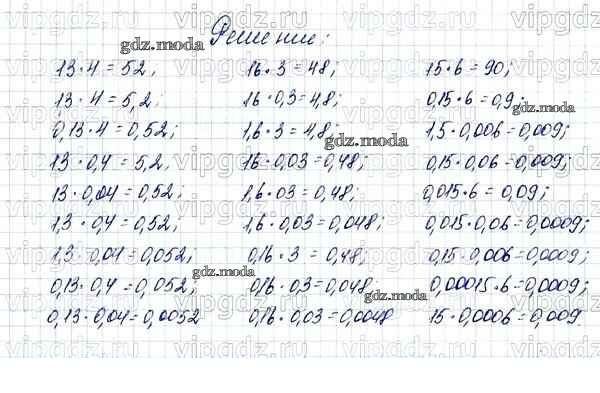 Решение:
13·4=52; 16·3=48; 15·6=90;
13·4=5,2; 16·0,3=4,8; 0,15·6=0,9;
0,13·4=0,52; 1,6·3=4,8; 1,5·0,006=0,009;
13·0,4=5,2. 16·0,03=0,48; 0,15·0,06=0,009;
13·0,04=0,52; 1,6·03=0,48; 0,015·6=0,09;
1,3·0,4=0,52; 1,6·0,03=0,048; 0,015·0,06=0,0009;
1,3·0,04=0,052; 0,16·3=0,48; 0,15·0,006=0,0009;
0,13·0,4=0,052; 0,16·0,3=0,048; 0,00015·6=0,0009;
0,13·0,04=0,0052 0,16·0,03=0,0048 15·0,0006=0,009.
gdz.moda
gdz.moda
gdz.moda
gdz.moda
gdz.moda
vipgdz.ru